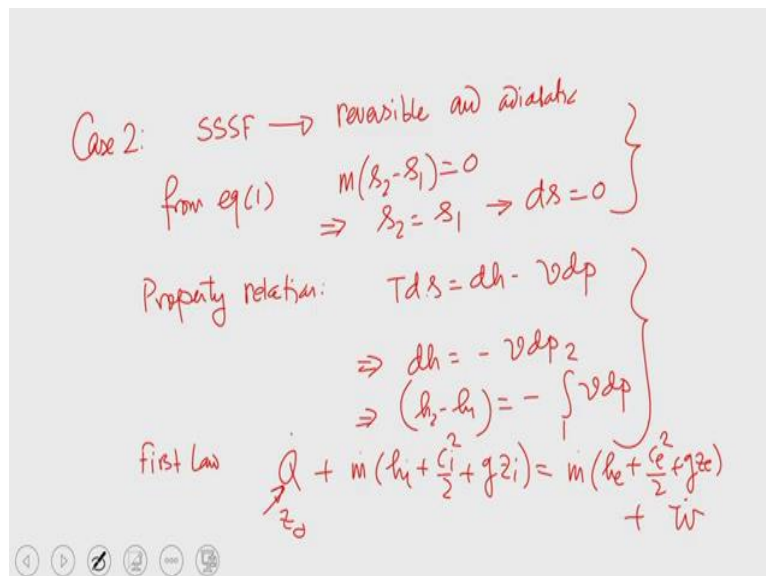 Case 2: SSSF → reversible and adiabatic
from eq(1) m(s₂-s₁)=0
⇒ s₂ = s₁ → ds = 0
Property relation: Tds = dh - vdp
⇒ dh = - vdp
⇒ (h₂-h₁) = - ∫₁² vdp
first Law Q̇ + ṁ(hᵢ + cᵢ²/2 + gzᵢ) = ṁ(hₑ + cₑ²/2 + gzₑ)
+ Ẇ